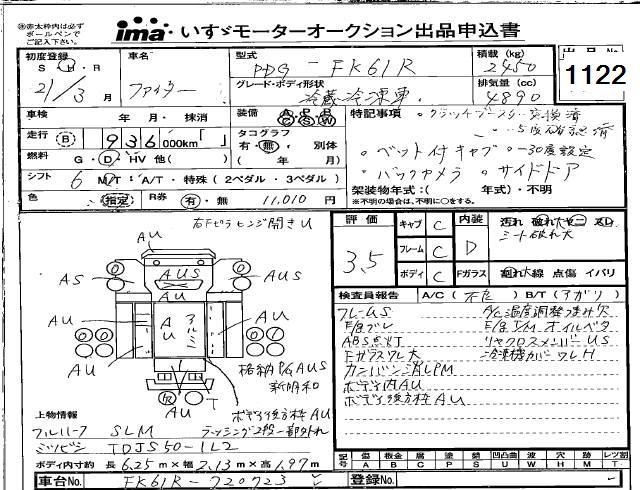 ※赤太枠内は必ず
ボールペンで
ご記入下さい。
ima いすゞモーターオークション出品申込書
初度登録
S・H・R
21/3月
車名
ファイター
型式
PDG-FK61R
グレード・ボディ形状
冷蔵冷凍車
積載 (kg)
2450
排気量 (cc)
4890
出品No.
1122
車検 年 月・抹消
走行 B 936000km「 」
燃料 G・D・HV 他( )
シフト 6 M/T・A/T・特殊(2ペダル・3ペダル)
色 指定 R券 有・無 11,010円
装備
タコグラフ
有・無・別体
( 年 月)
特記事項 ・クラッチブースター交換済
・ベット付キャブ ・-30度設定
・バックカメラ ・サイドドア
架装物年式:( 年式)・不明
※不明の場合は、不明に○をする。
右下ピラヒンジ開きU
AU
AS AUS AUS
AU
AU アルミ AU
AU
格納PG AUS
新明和
R T
ボデー後方枠AU
評価
3.5
キャブ C
フレーム C
ボディ C
内装 D
Fガラス
シート破れ大
割れ大 線 点傷 イバリ
検査員報告 A/C(不良) B/T(アガリ)
フレームS
A/C温度調整つまみ欠
E/gブレ
E/g T/M オイルベタ
ABS点灯
リヤクロスメンバーUS
Fガラスワレ大
冷凍機カバーワレH
カンバン消しPM
ボデー内AU
ボデー後方枠AU
上物情報
フルハーフ SLM ラッシング2段 一部外れ
ミツビシ TDJS50-1L2
ボディ内寸約 長6.25m×幅2.13m×高1.97m
記号 傷A 板金B 腐C 塗P 錆S 凹U 凸凹曲W 波W 穴H 灰M レツ割T
車台No. FK61R-720723
登録No.